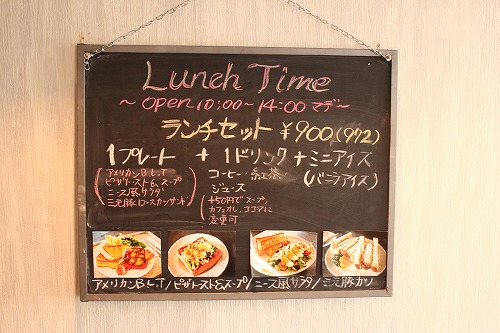 Lunch Time
～OPEN 10:00～14:00マデ～
ランチセット ¥900(972)
1プレート + 1ドリンク + ミニアイス
(アメリカンB.L.T
ピザトースト&スープ
ニース風サラダ
三元豚ロースカツサンド)
(コーヒー・紅茶・
ジュース
+50円でスープ、
カフェオレ、ココアに
変更可)
(バニラアイス)
アメリカンB.L.T/ピザトースト&スープ/ニース風サラダ/三元豚カツ